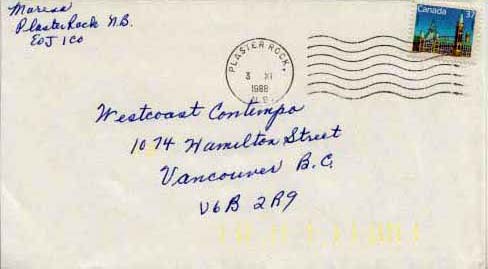 Maresa
Plaster Rock N.B.
E0J 1C0
Canada 37
PLASTER ROCK,
3 XI
1988
N.B.
Westcoast Contempo
1074 Hamilton Street
Vancouver B.C.
V6B 2R9